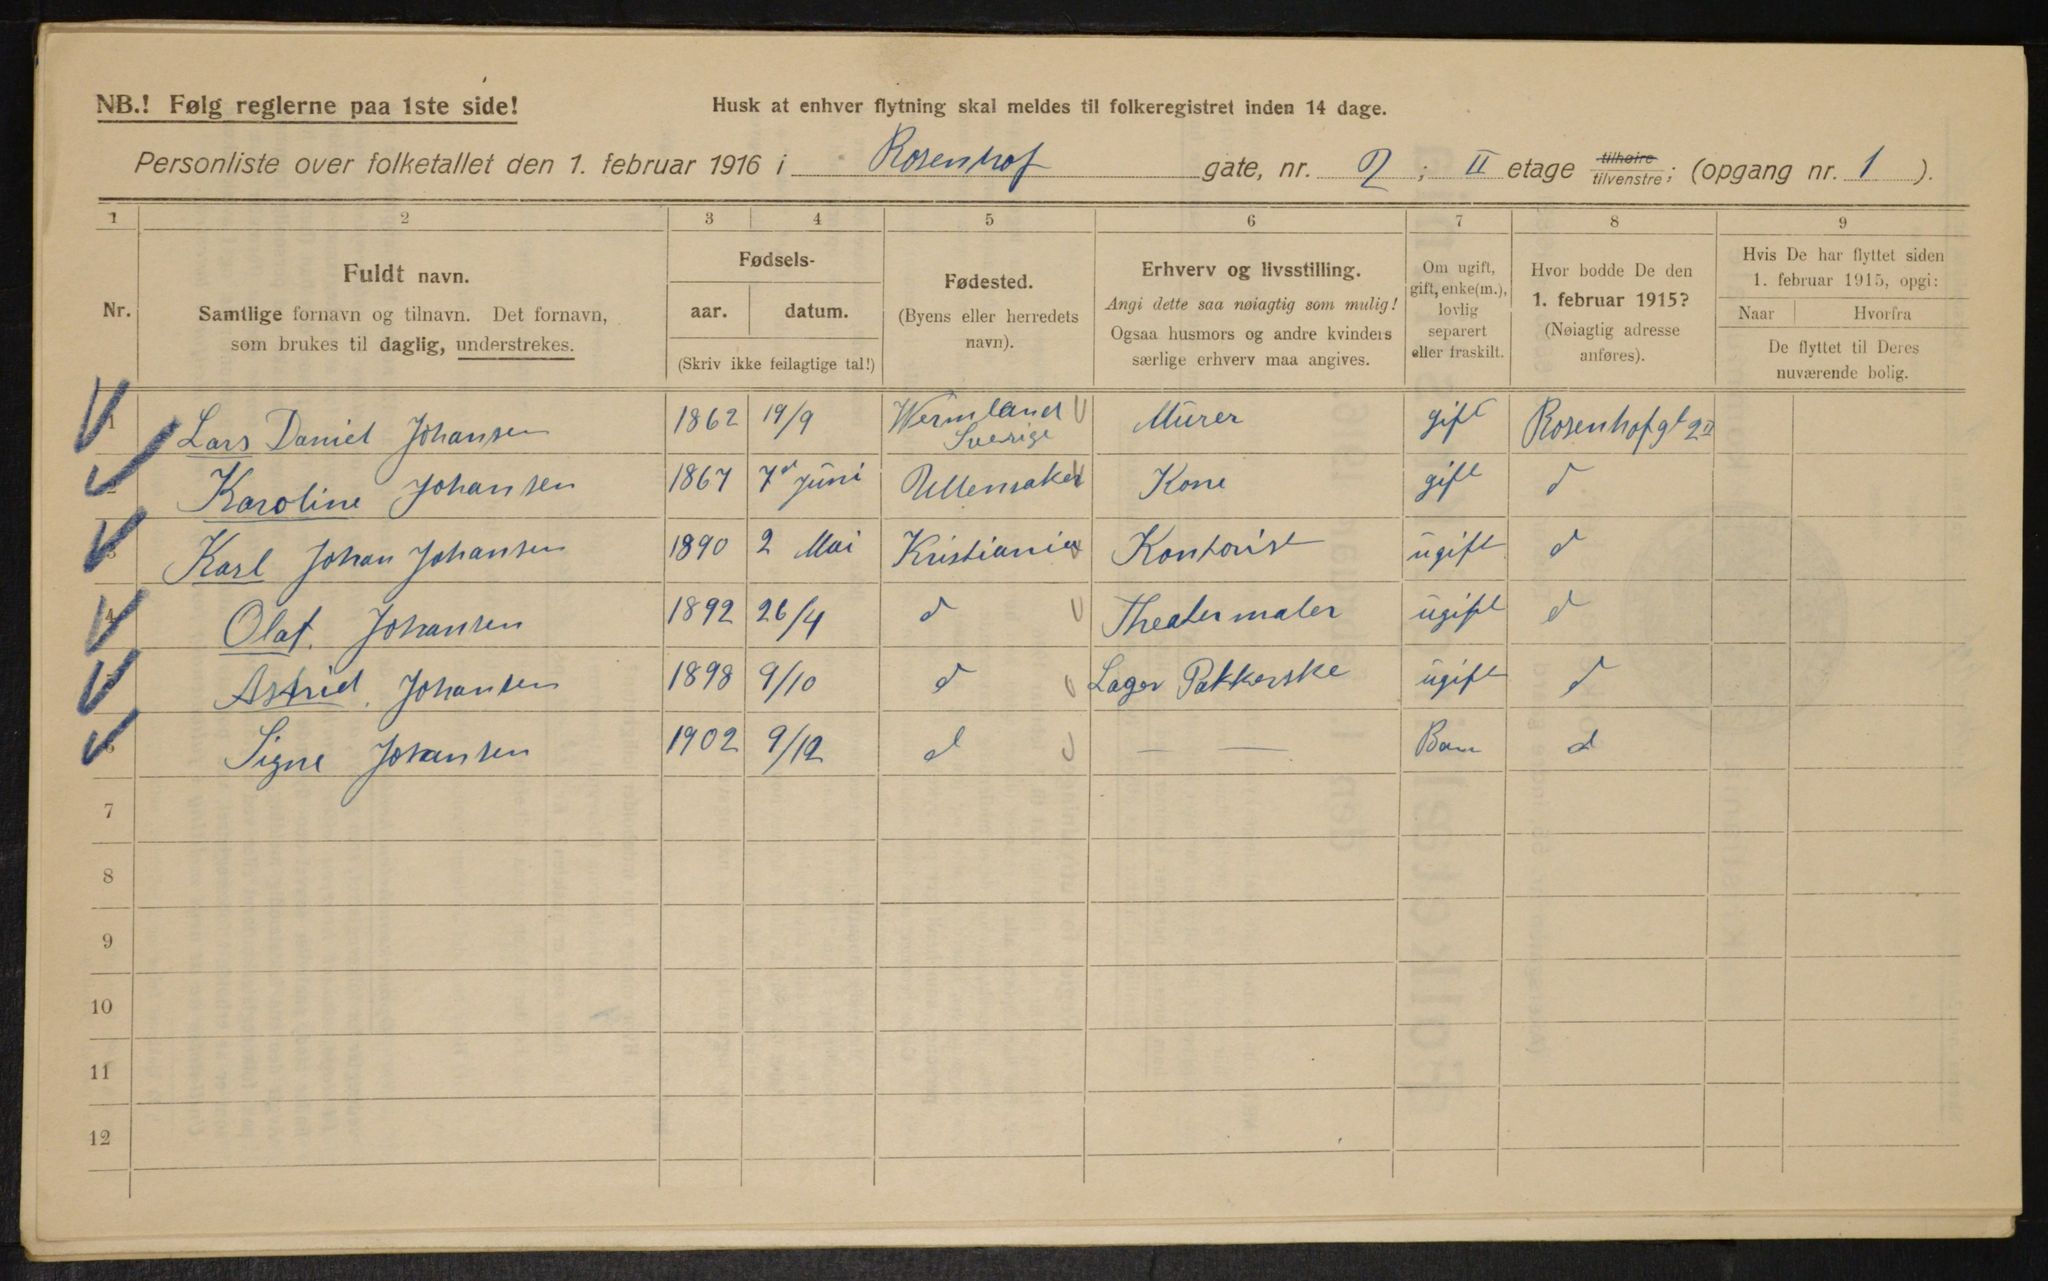 NB.! Følg reglerne paa 1ste side!
Husk at enhver flytning skal meldes til folkeregistret inden 14 dage.
Personliste over folketallet den 1. februar 1916 i Rosenhof gate, nr. 2; II etage tilhøire tilvenstre; (opgang nr. 1).
1 2 3 4 5 6 7 8 9
Nr.
Fuldt navn.
Samtlige fornavn og tilnavn. Det fornavn,
som brukes til daglig, understrekes.
Fødsels-
aar. datum.
(Skriv ikke feilagtige tal!)
Fødested.
(Byens eller herredets
navn).
Erhverv og livsstilling.
Angi dette saa nøiagtig som mulig!
Ogsaa husmors og andre kvinders
særlige erhverv maa angives.
Om ugift,
gift, enke(m.),
lovlig
separert
eller fraskilt.
Hvor bodde De den
1. februar 1915?
(Nøiagtig adresse
anføres).
Hvis De har flyttet siden
1. februar 1915, opgi:
Naar Hvorfra
De flyttet til Deres
nuværende bolig.
1 Lars Daniel Johansen 1862 19/9 Wermland Sverige Murer gift Rosenhofgt 2 II
2 Karoline Johansen 1867 7d Juni Ullensaker Kone gift d
3 Karl Johan Johansen 1890 2 Mai Kristiania Kontorist ugift d
4 Olaf. Johansen 1892 26/4 d Theatermaler ugift d
5 Astrid. Johansen 1898 9/10 d Lager Pakkerske ugift d
6 Signe Johansen 1902 9/12 d — — Barn d
7
8
9
10
11
12